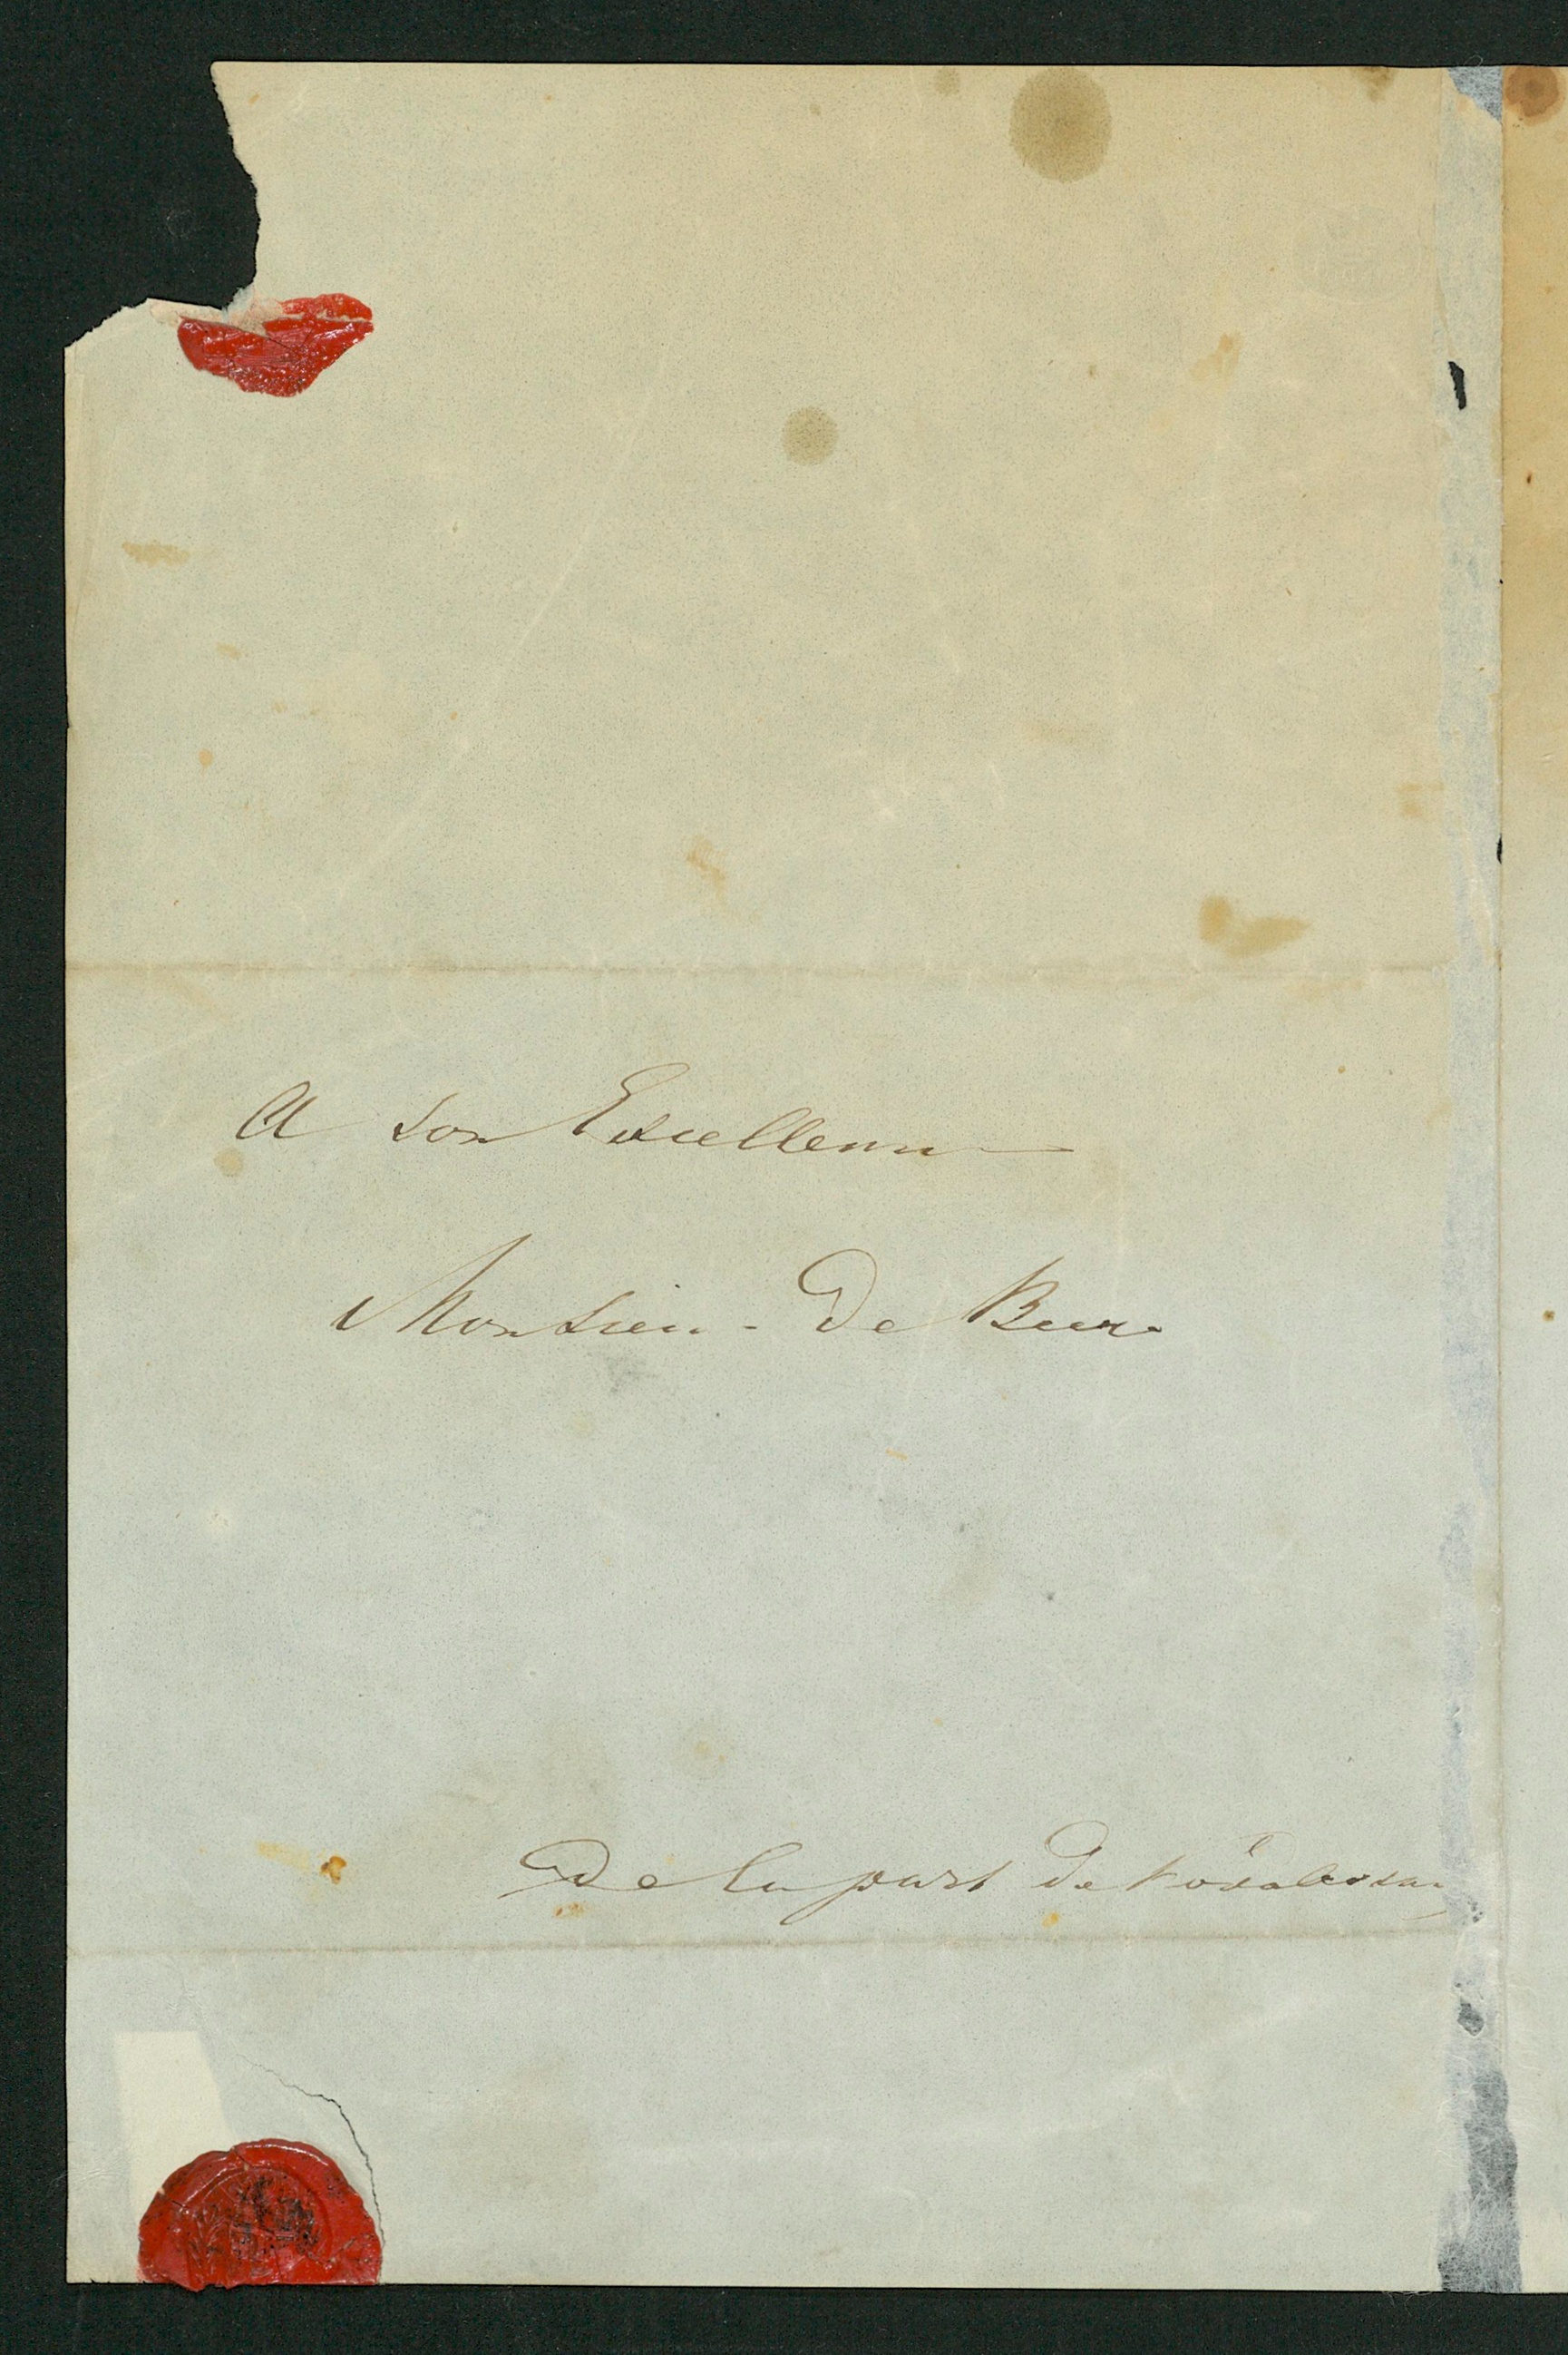 A son Excellence
Monsieur de Beer
De la part de